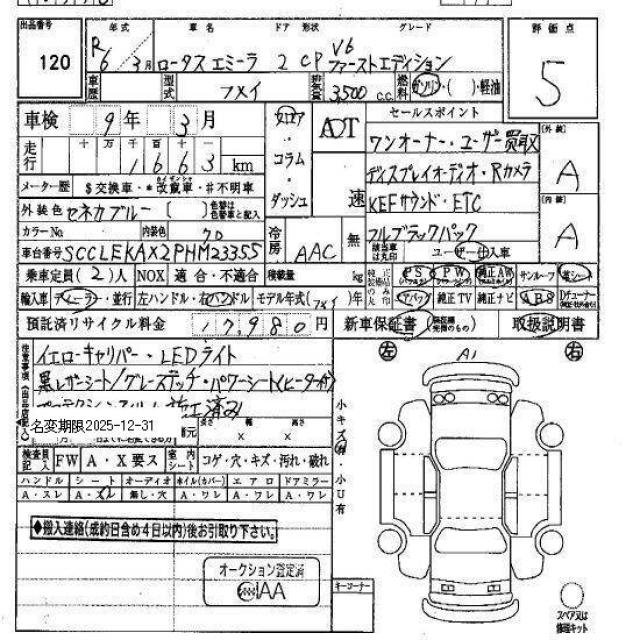 出品番号 年式 車名 ドア 形状 グレード 評価点
120 R6/3月 ロータス エミーラ 2 CP V6 ファーストエディション 5
車歴 型式 フメイ 排気量 3,500 c.c. 燃料 ガソリン・( )・軽油
車検 9年 3月 フロア・コラム・ダッシュ AOT 速 セールスポイント
走行 十 万 千 百 十 一
1663 km
ワンオーナー・ユーザー買取 [外装] A
ディスプレイオーディオ・Rカメラ
メーター歴 $交換車・*改竄車・#不明車
KEFサウンド・ETC [内装] A
外装色 セネカブルー [ ] 色替は色替車と記入
フルブラックパック
カラーNo 内装色 クロ 冷房 AAC 無 該当車は丸印 ユーザー・仕入車
車台番号 SCCLEKAX2PHM23355
乗車定員(2)人 NOX 適合・不適合 積載量 kg PS PW 純正AW サンルーフ 革シート
輸入車 ディーラー・並行 左ハンドル・右ハンドル モデル年式(フメイ)年 エアバッグ 純正TV 純正ナビ ABS Dチューナー
預託済リサイクル料金 17,980円 新車保証書 取扱説明書
イエローキャリパー・LEDライト 左 A1 右
黒レザーシート/グレーステッチ・パワーシート(ヒーター付)
施工済み
名変期限2025-12-31
長さ 幅 高さ
x x
検査員記入 FW A・X要ス 室内シート コゲ・穴・キズ・汚れ・破れ
小キズ有・小U有
ハンドル シート オーディオ ホイル(カバー) エアロ ドアミラー
A・スレ A・スレ 無し・穴 A・ワレ A・ワレ A・ワレ
◆搬入連絡(成約日含め4日以内)後お引取り下さい。
オークション査定済
IAA
キーコーナー
スペア又は修理キット